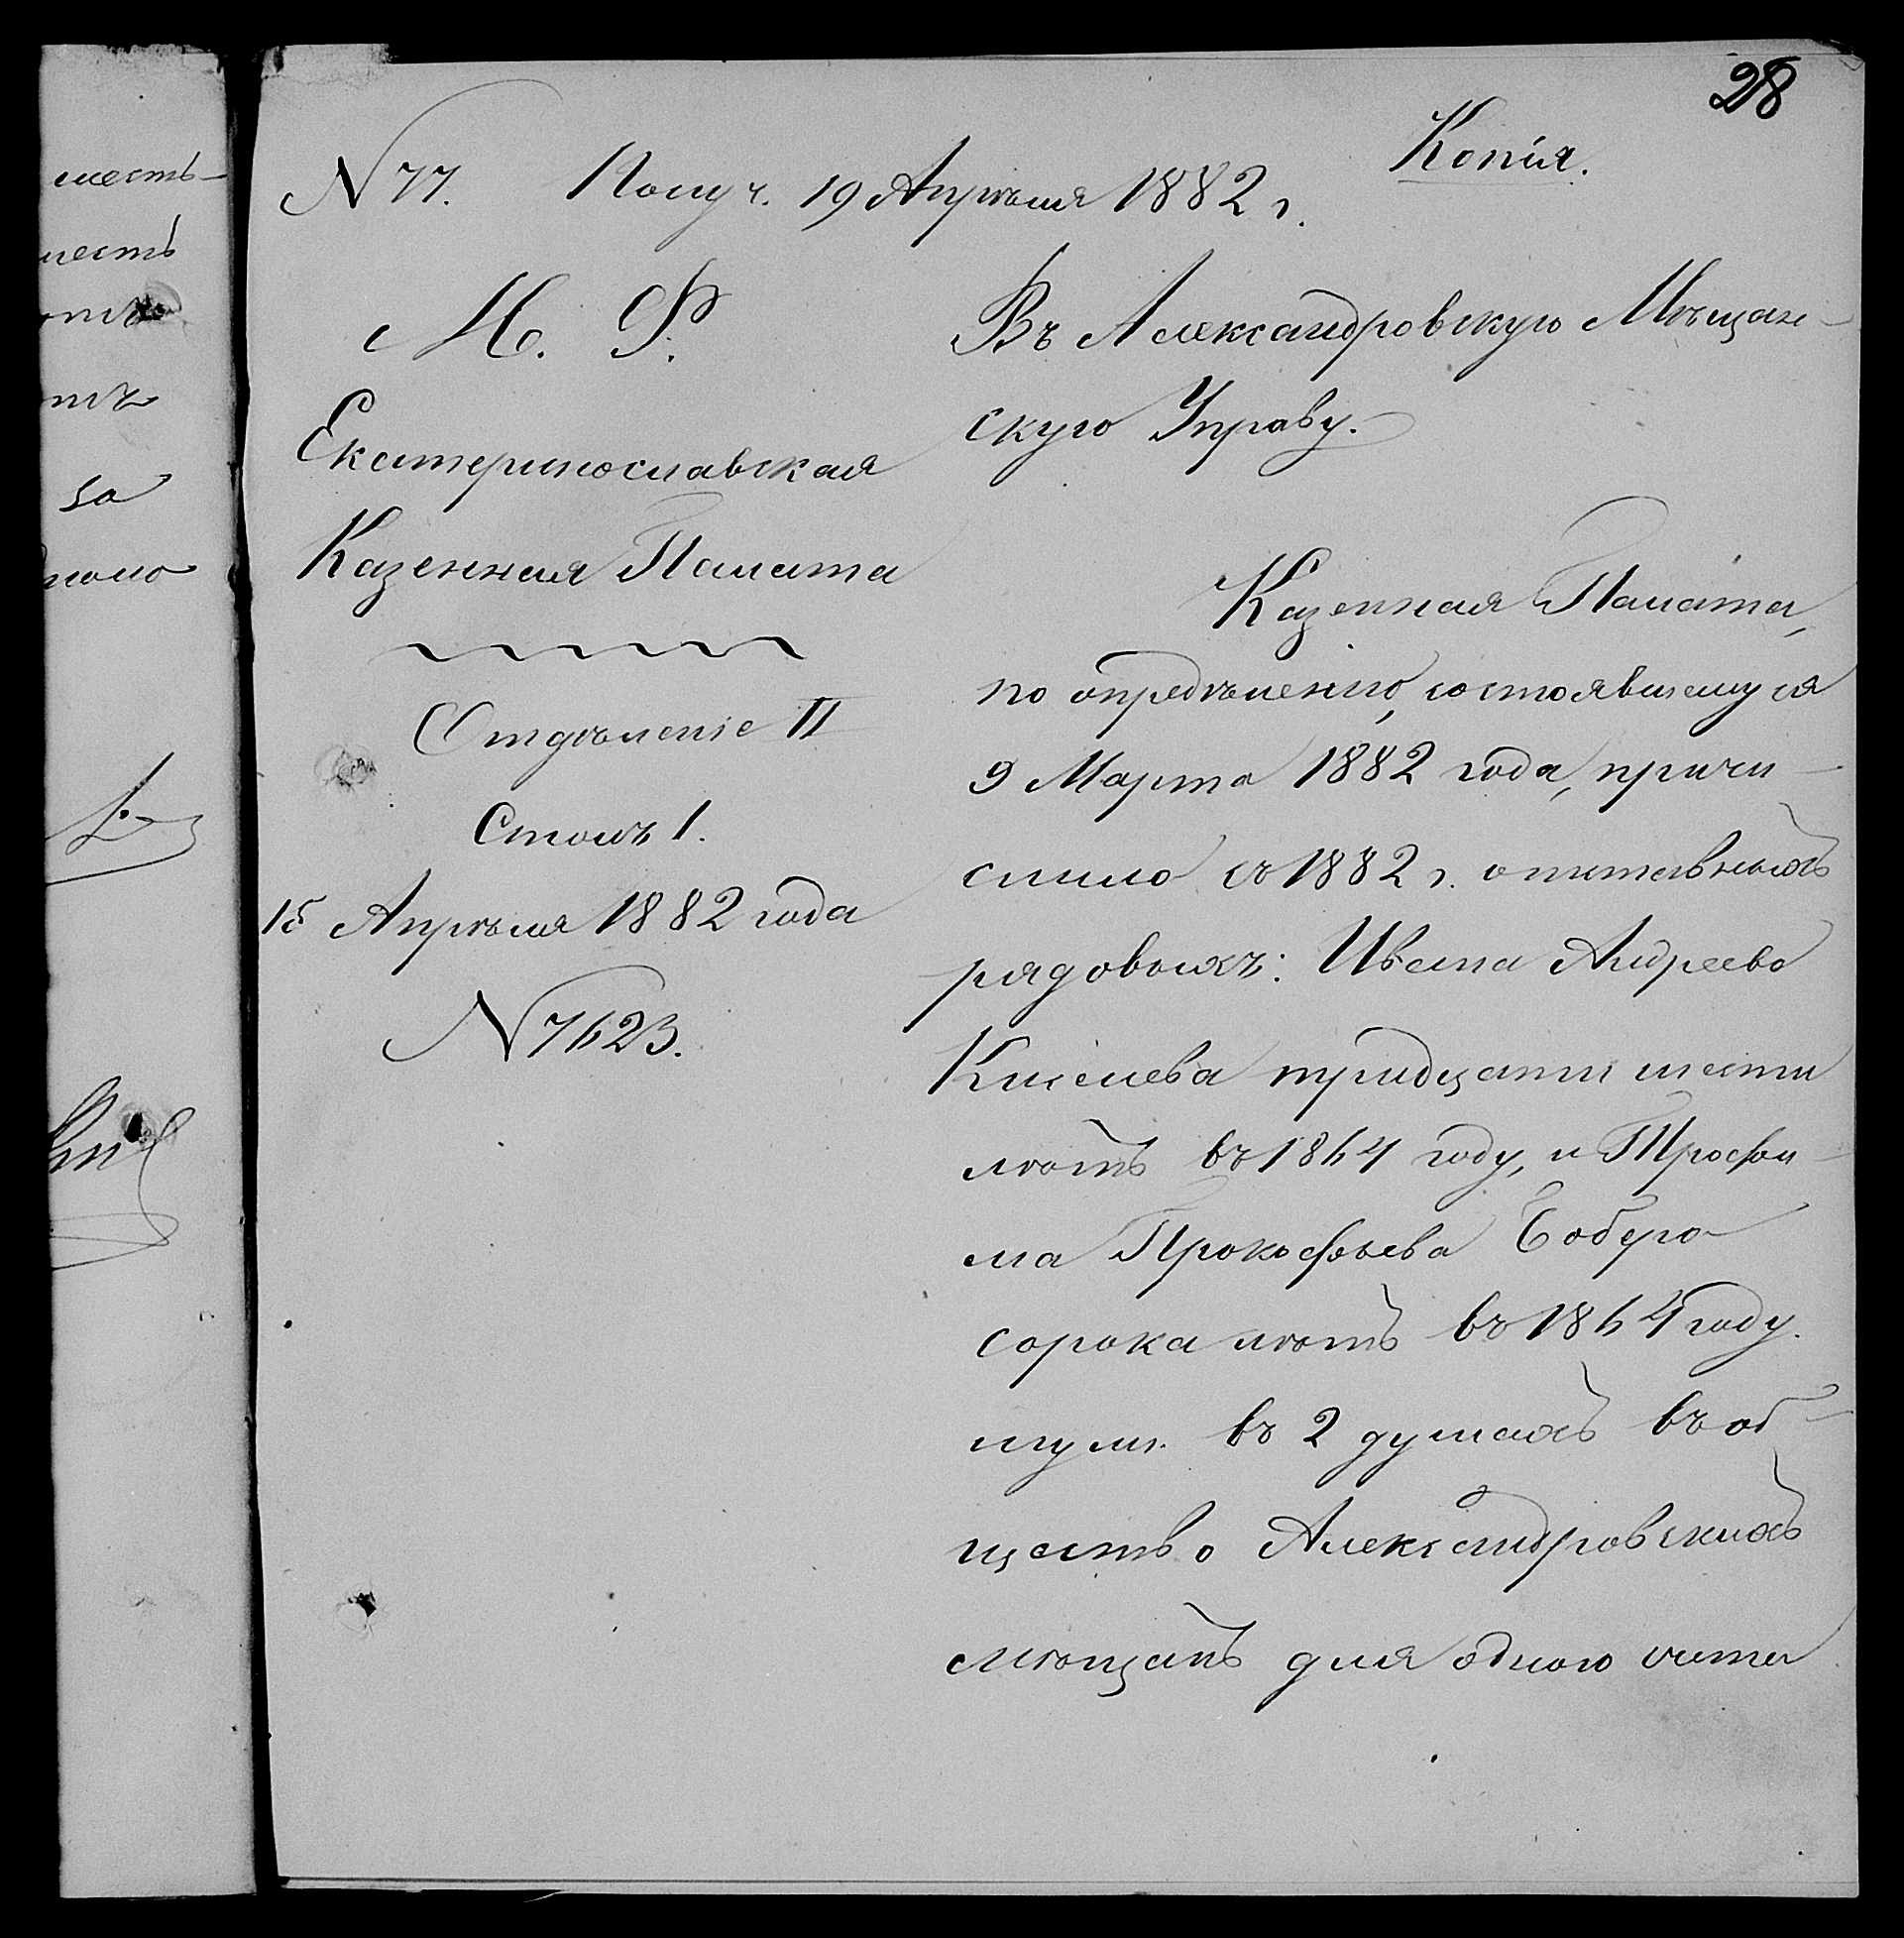 28
Копія.
N 77. Получ. 19 Апрѣля 1882 г.
М. Ф.
Екатеринославская
Казенная Палата
Отдѣленіе II
Столъ 1.
15 Апрѣля 1882 года
N 7623.
Въ Александровскую Мѣщан-
скую Управу.
Казенная Палата,
по опредѣленію, состоявшемуся
9 Марта 1882 года, причи-
слило съ 1882 г. отставныхъ
рядовыхъ: Ивана Андреева
Киселева тридцати шести
лѣтъ въ 1864 году, и Трофи-
ма Прокофьева
сорока лѣтъ въ 1864 году.
въ 2 душахъ въ об-
щество Александровскихъ
мѣщанъ для одного счета
шесть-